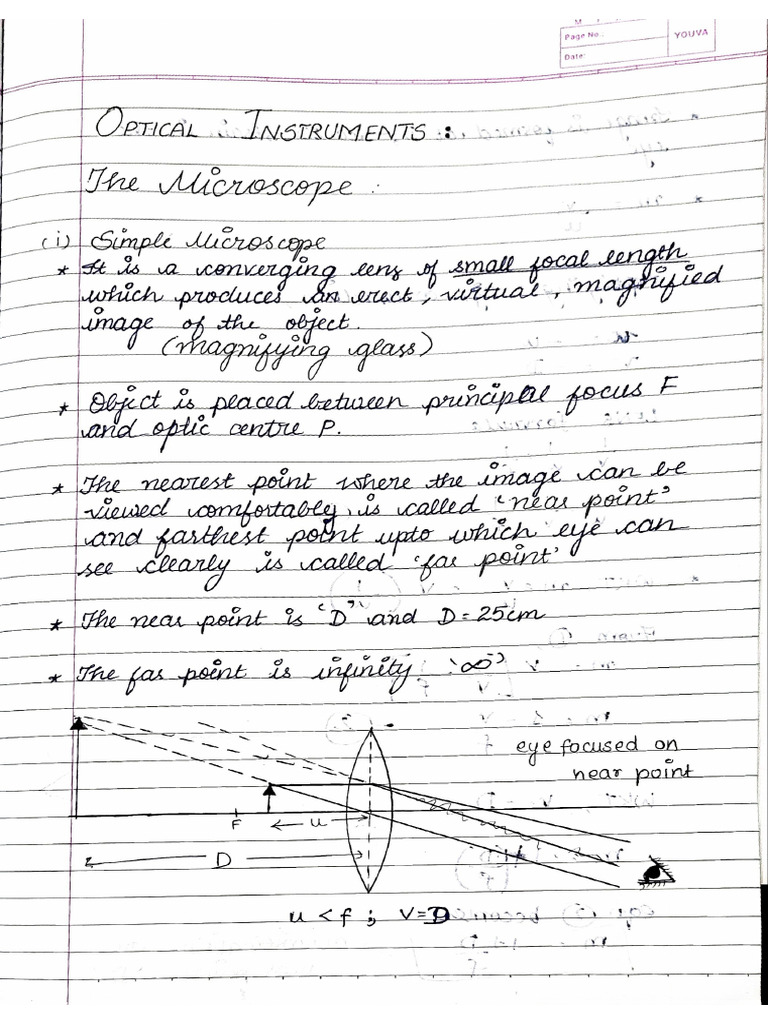 Page No.:
YOUVA
Date:
OPTICAL INSTRUMENTS :
The Microscope :
(i) Simple Microscope
* It is a converging lens of small focal length
which produces an erect, virtual, magnified
image of the object.
(magnifying glass)
* Object is placed between principle focus F
and optic centre P.
* The nearest point where the image can be
viewed comfortably is called 'near point'
and farthest point upto which eye can
see clearly is called 'far point'
* The near point is 'D' and D = 25cm
* The far point is infinity '∞'
eye focused on
near point
F
u
D
u < f ; V = D